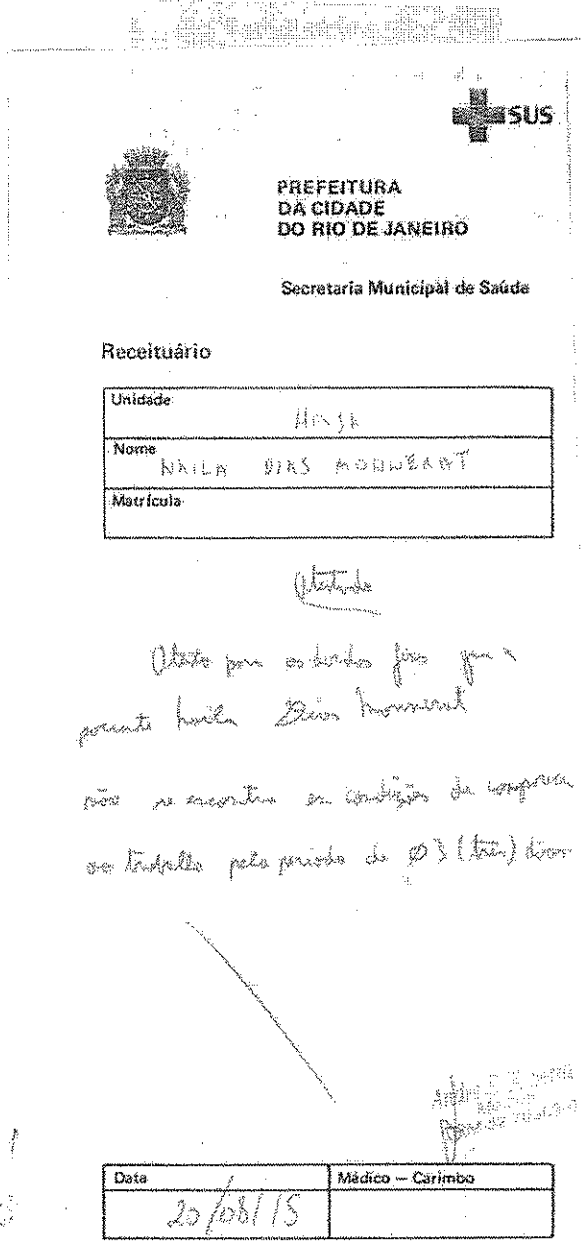 SUS
PREFEITURA
DA CIDADE
DO RIO DE JANEIRO
Secretaria Municipal de Saúde
Receituário
Unidade
Nome
NAILA DIAS MONNERAT
Matrícula
Atestado
Atesto para os devidos fins que a
paciente Naila Dias Monnerat
não se encontra em condições de comparecer
ao trabalho pelo período de 03 (três) dias
Data
Médico — Carimbo
20/08/15